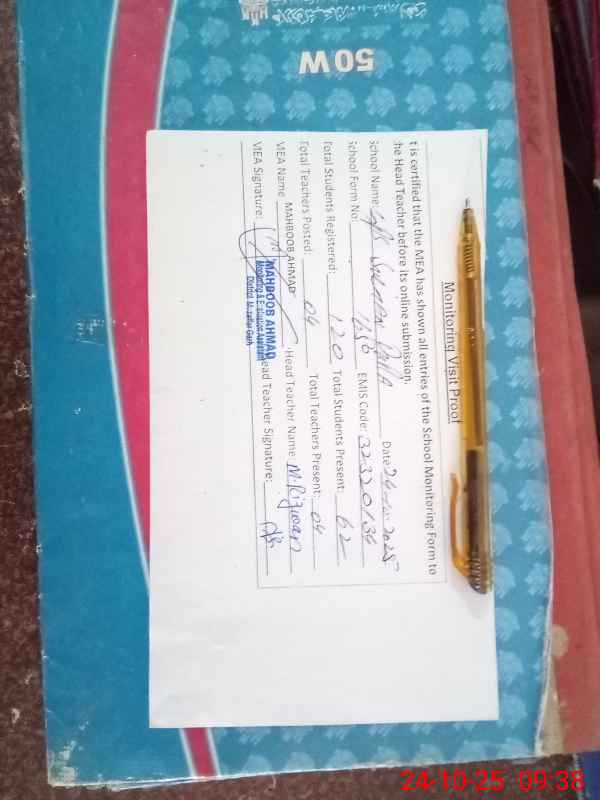 50W
Monitoring Visit Proof
t is certified that the MEA has shown all entries of the School Monitoring Form to
he Head Teacher before its online submission.
School Name: Date: 24-10-2025
School Form No: 656 EMIS Code: 32320134
Total Students Registered: 120 Total Students Present: 62
Total Teachers Posted: 04 Total Teachers Present: 04
MEA Name MAHBOOB AHMAD Head Teacher Name: M. Rizwan
MEA Signature: ead Teacher Signature:
MAHBOOB AHMAD
Monitoring & Evaluation Assistant
District Muzaffar Garh
24-10-25 09:38